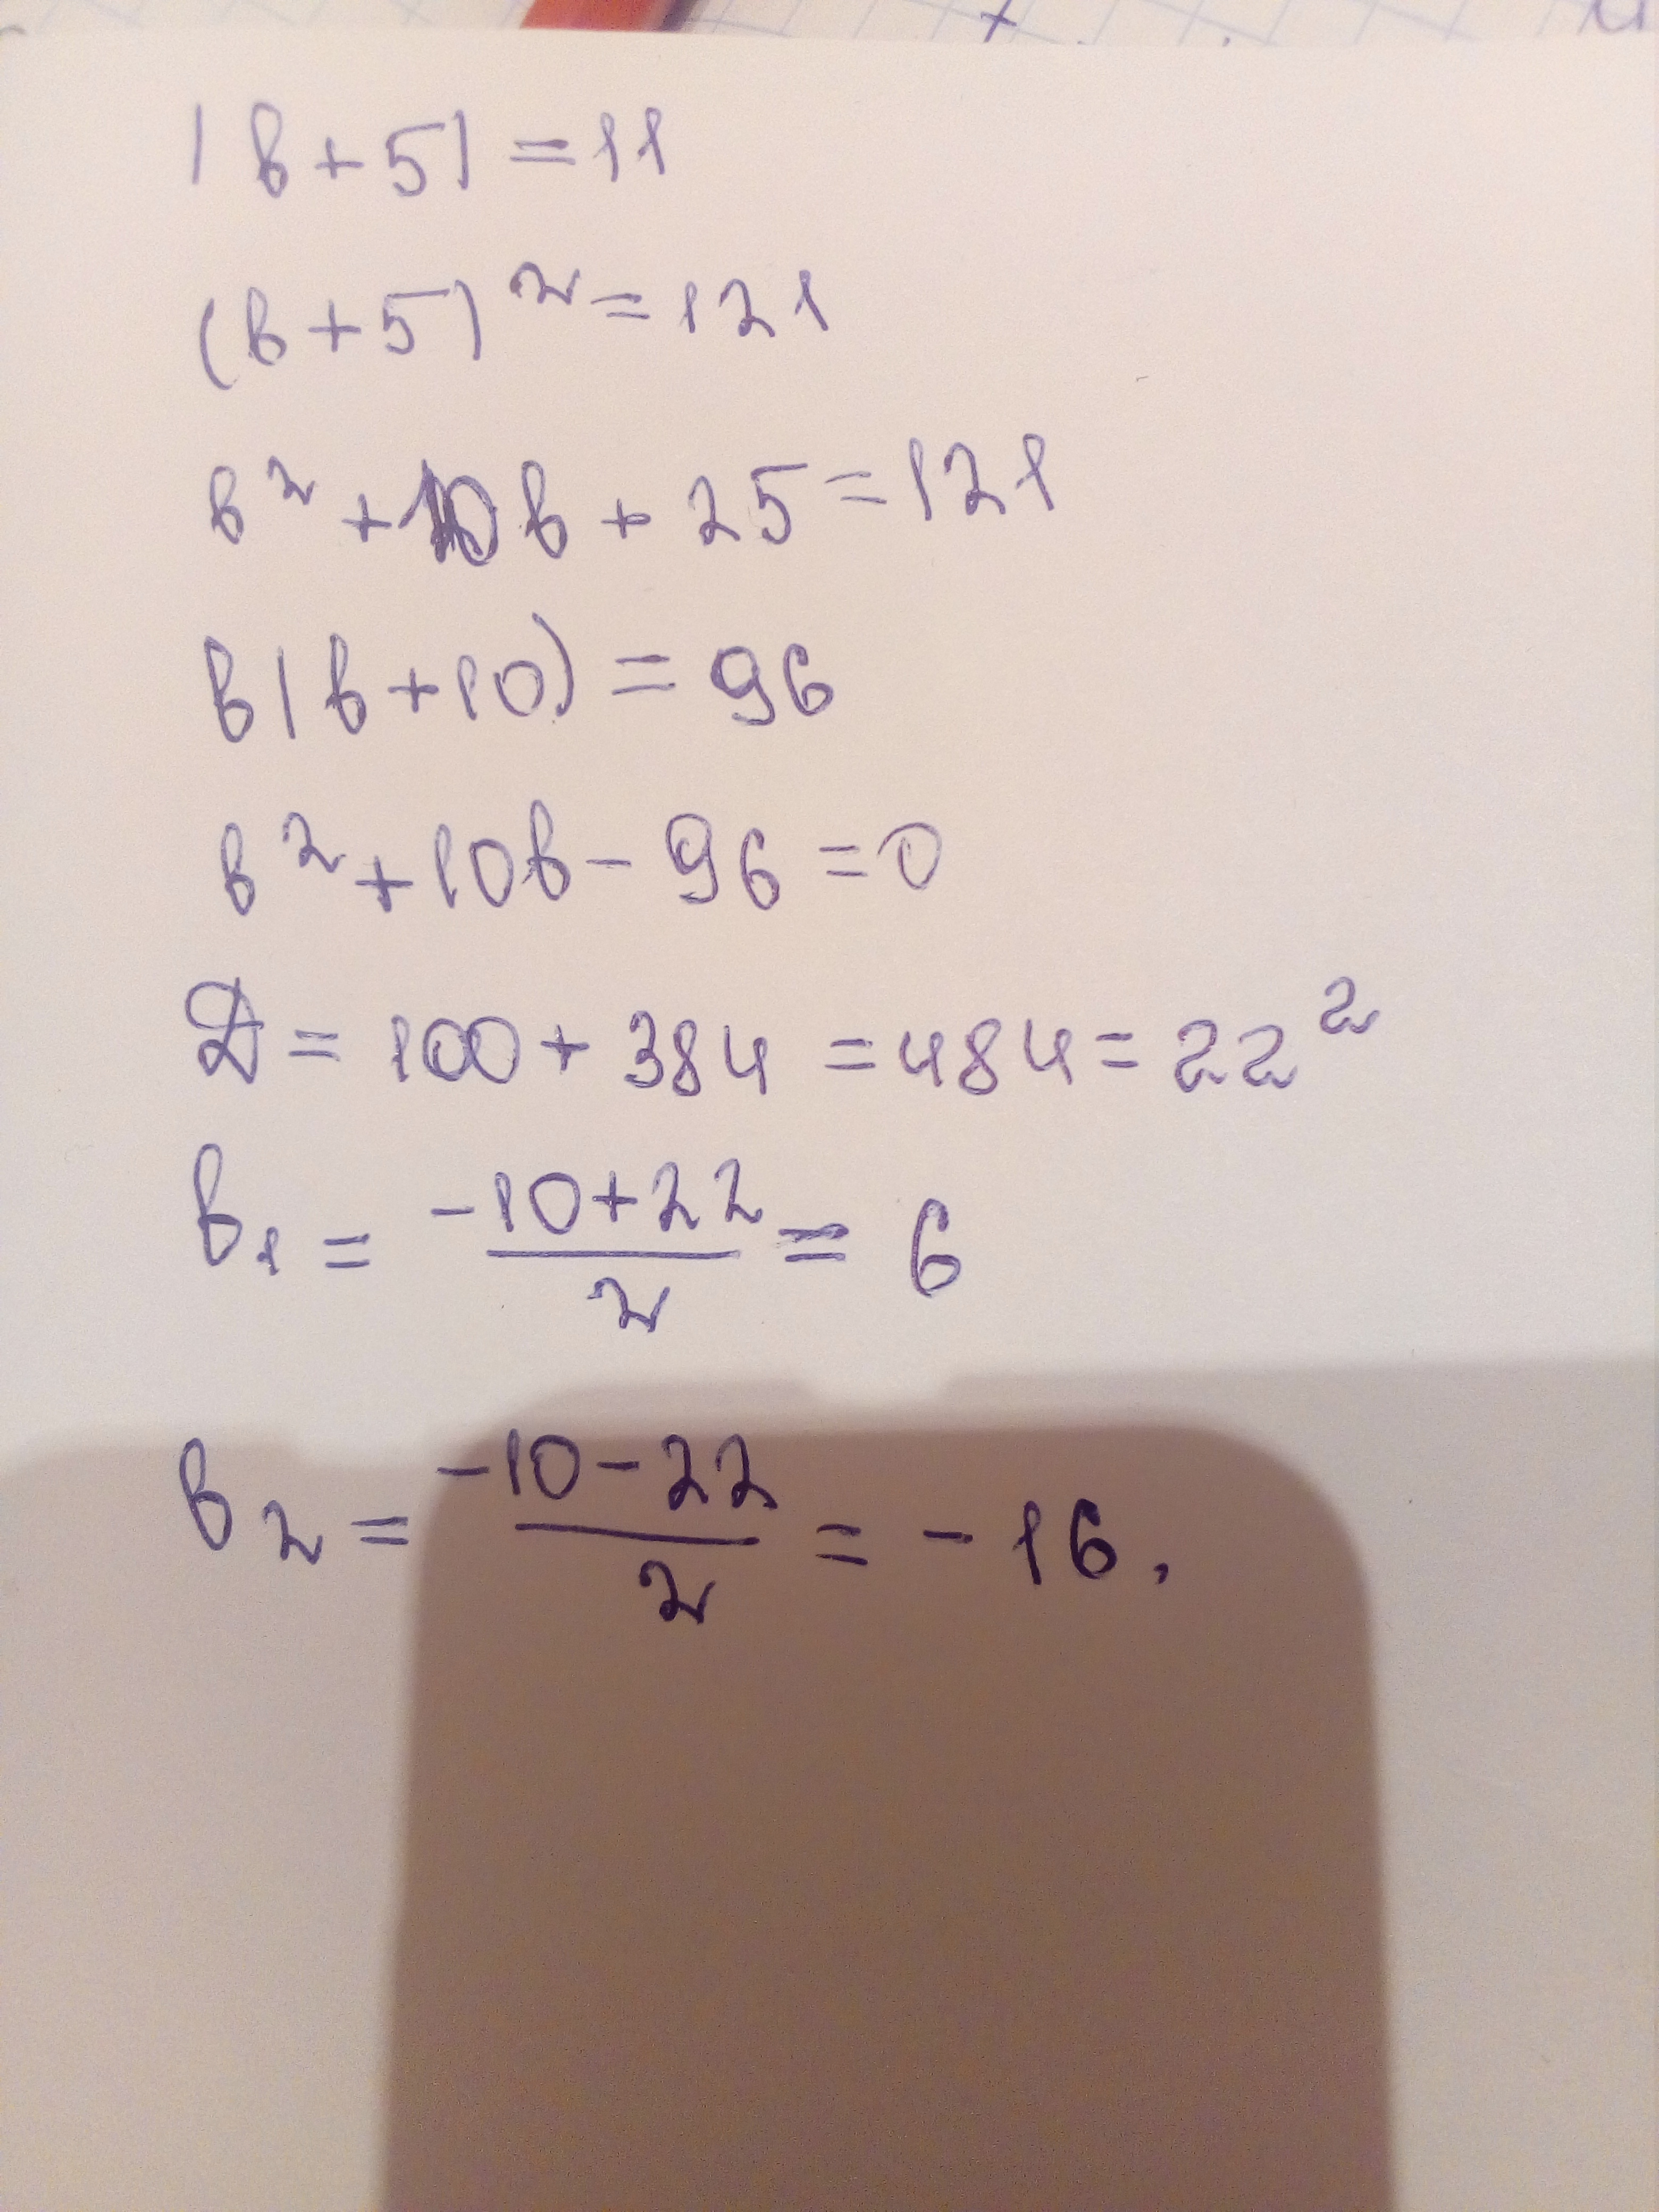 |в+5| =11
(в+5)²=121
в²+10в+25=121
в(в+10)=96
в²+10в-96=0
Д=100+384=484=22²
в₁=(-10+22)/2=6
в₂=(-10-22)/2=-16.